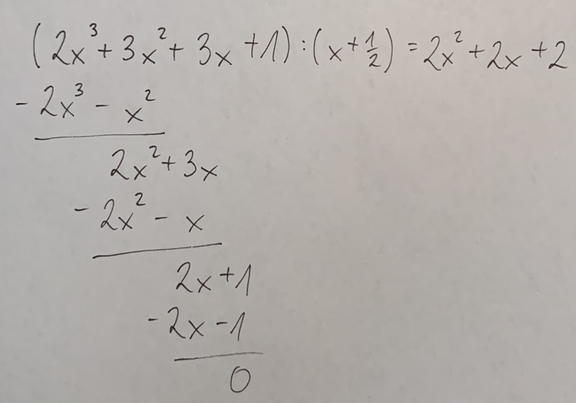 (2x³+3x²+3x+1):(x+½)=2x²+2x+2
-2x³-x²
2x²+3x
-2x²-x
2x+1
-2x-1
0